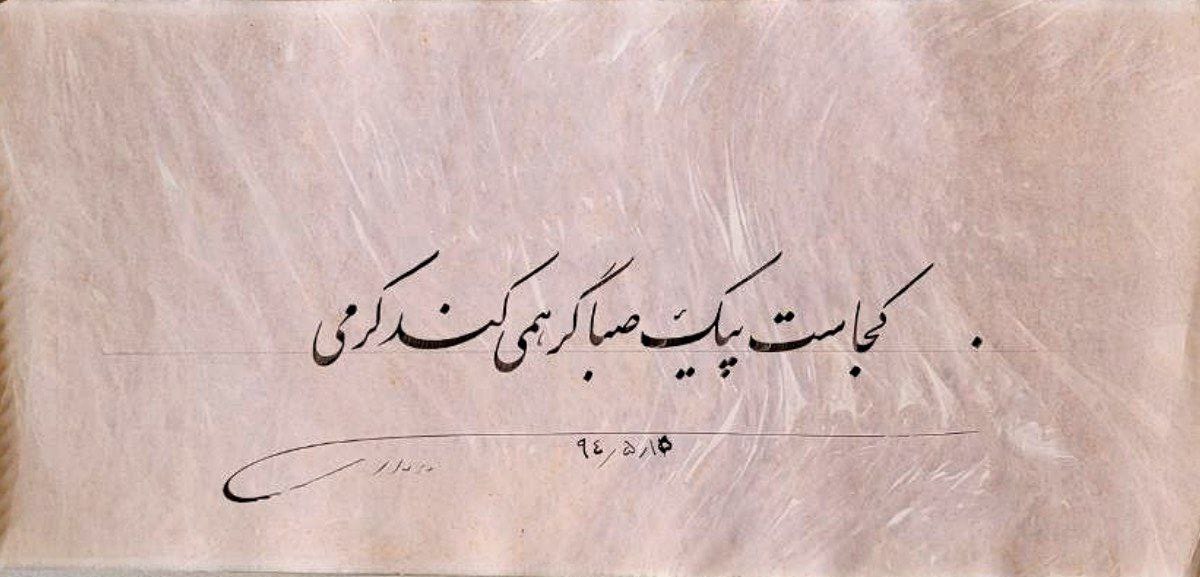 کجاست پیک صبا گر همی کند کرمی
۹٤٫۵٫۱۵